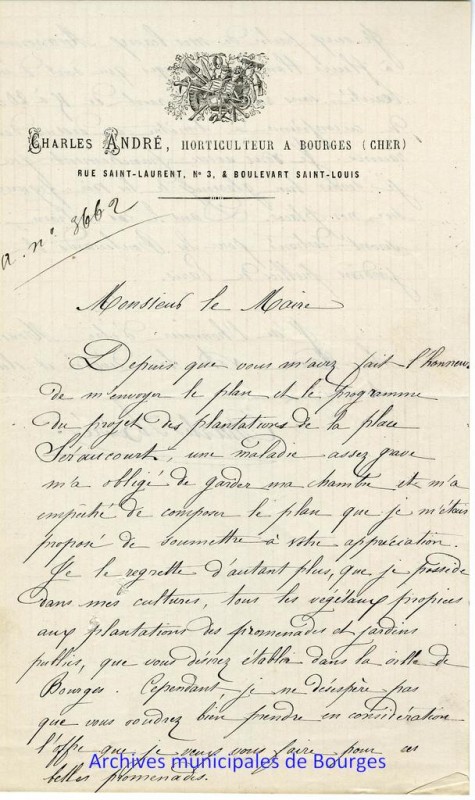 CHARLES ANDRÉ, HORTICULTEUR A BOURGES (CHER)
RUE SAINT-LAURENT, No 3, & BOULEVART SAINT-LOUIS
a. no 3662
Monsieur le Maire
Depuis que vous m'avez fait l'honneur
de m'envoyer le plan et le programme
du projet des plantations de la place
Séraucourt, une maladie assez grave
m'a obligé de garder ma chambre et m'a
empêché de composer le plan que je m'étais
proposé de soumettre à votre appréciation.
Je le regrette d'autant plus, que je possède
dans mes cultures, tous les végétaux propices
aux plantations des promenades et jardins
publics, que vous désirez établir dans la ville de
Bourges. Cependant, je ne désespère pas
que vous voudrez bien prendre en considération
l'offre que je veux vous faire pour ces
belles promenades.
Archives municipales de Bourges